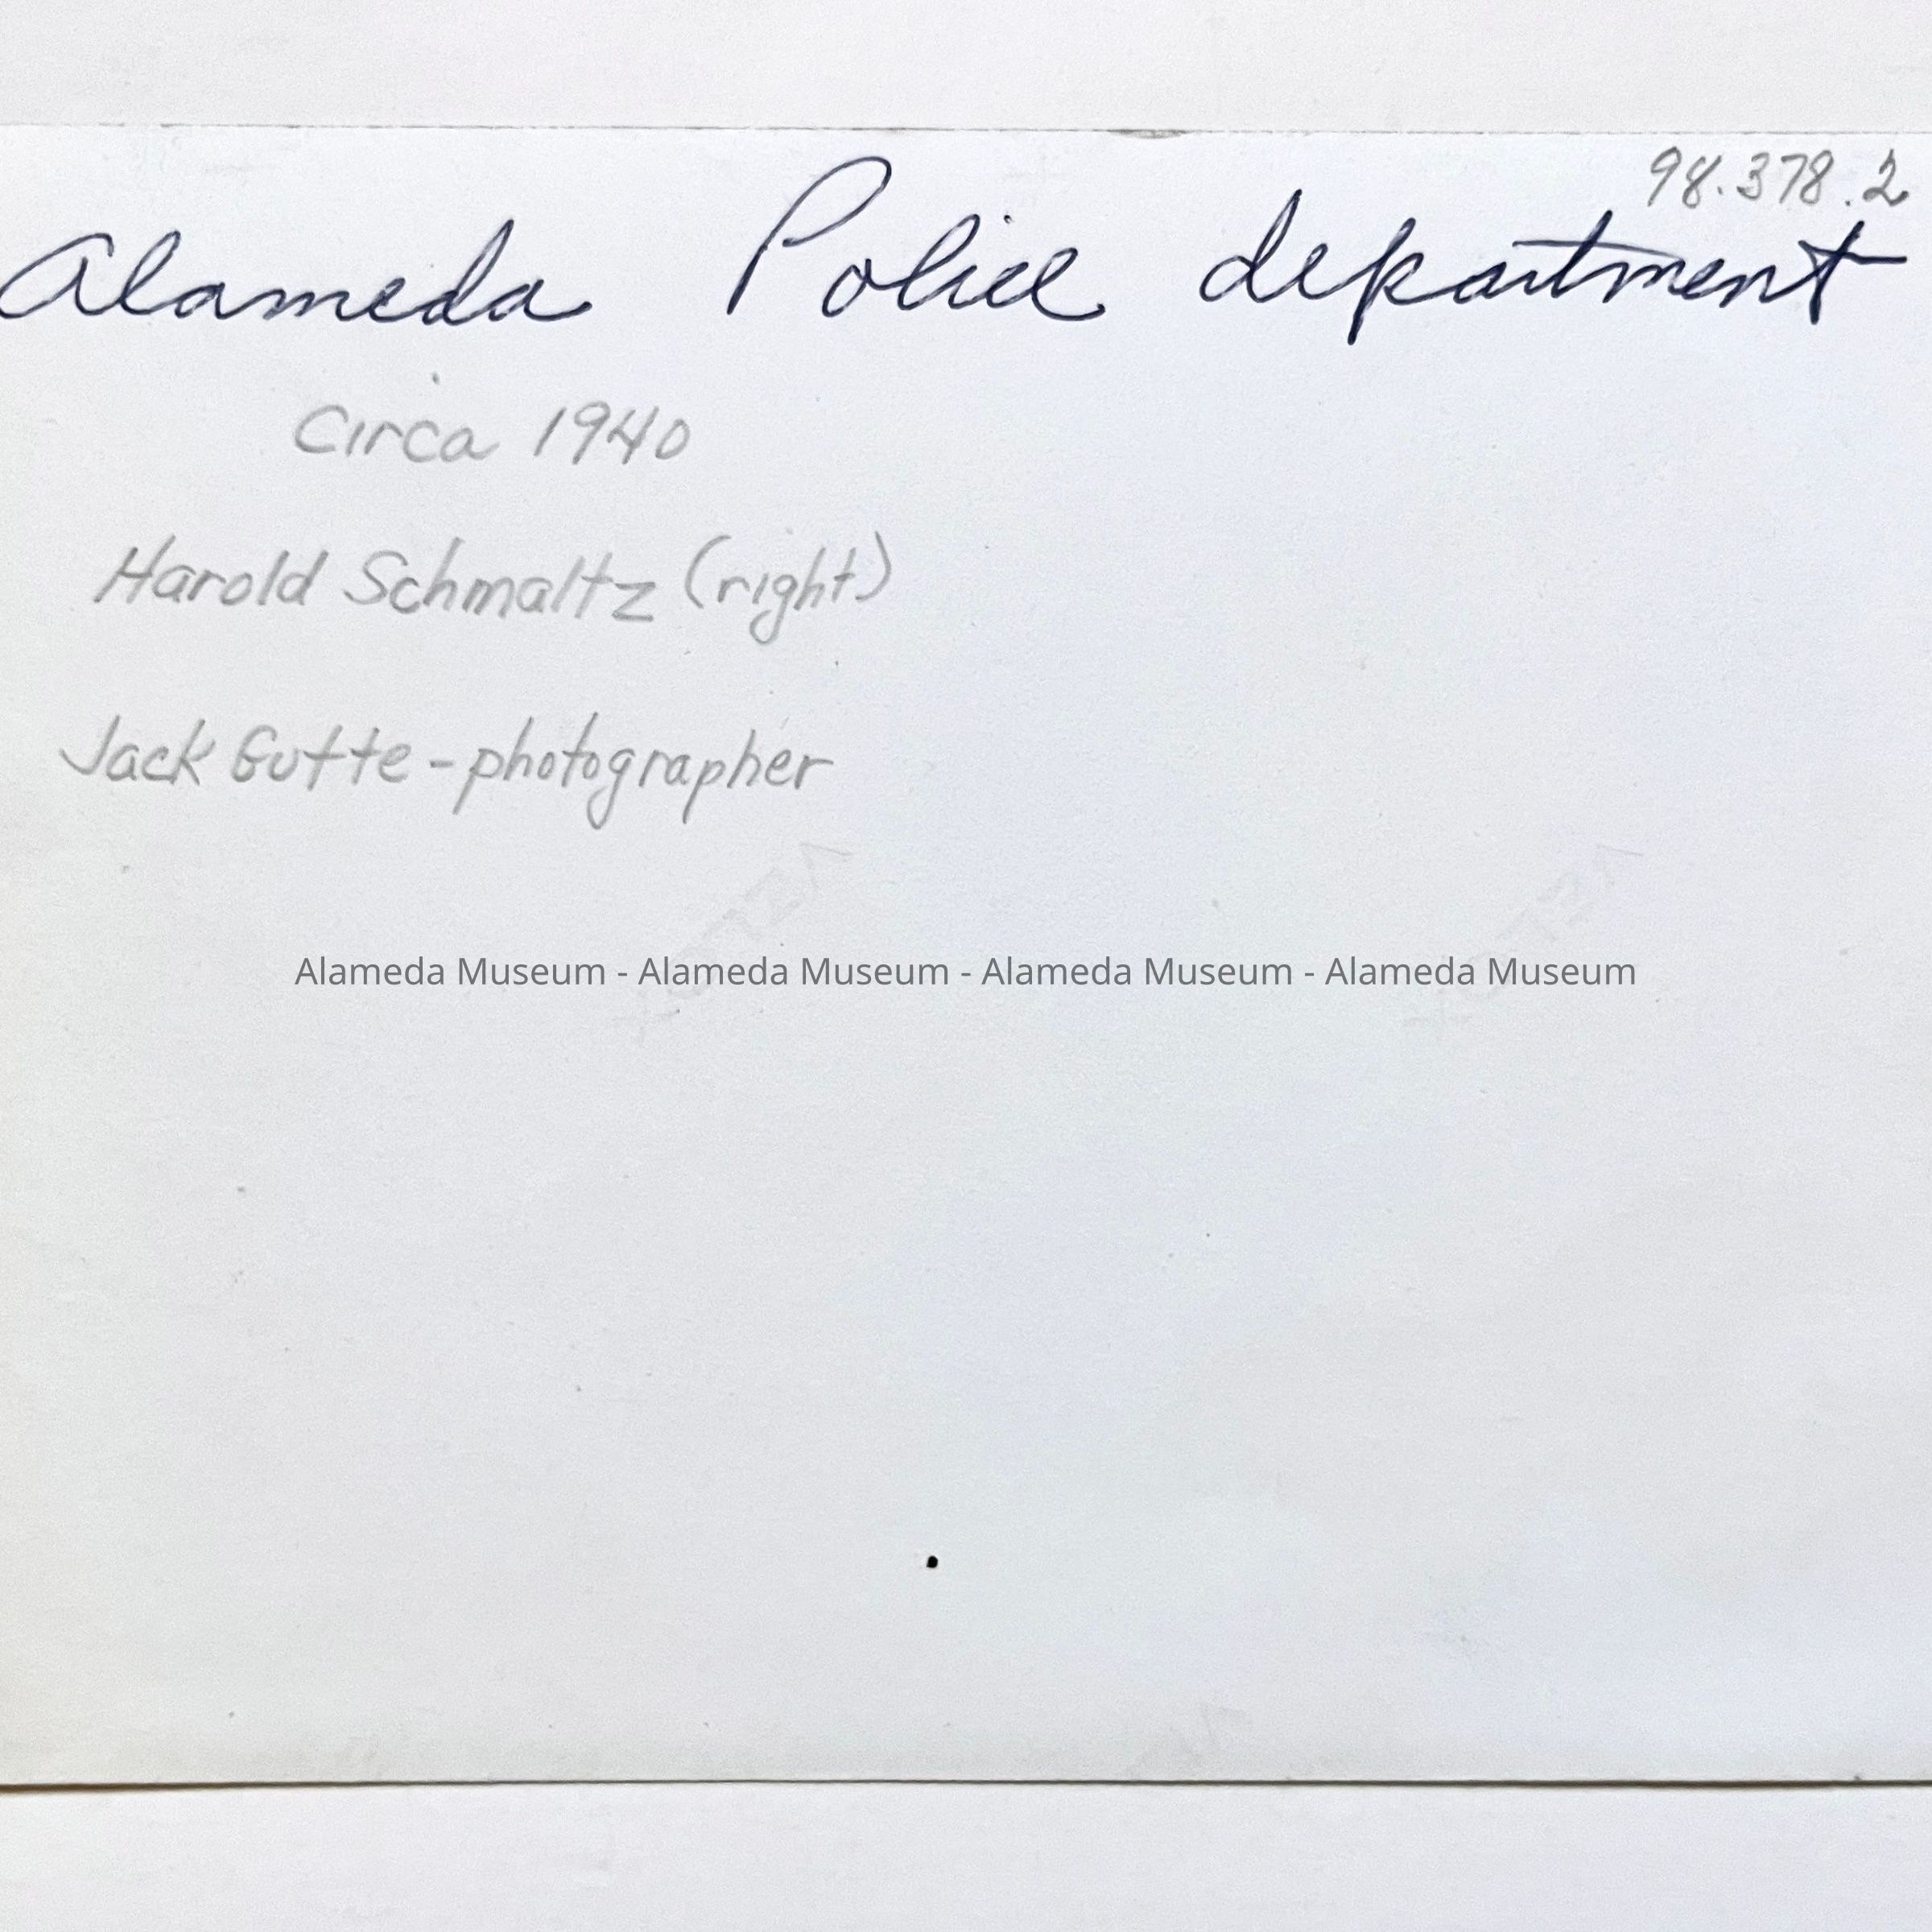 98.378.2
Alameda Police department
Circa 1940
Harold Schmaltz (right)
Jack Gutte - photographer
Alameda Museum - Alameda Museum - Alameda Museum - Alameda Museum